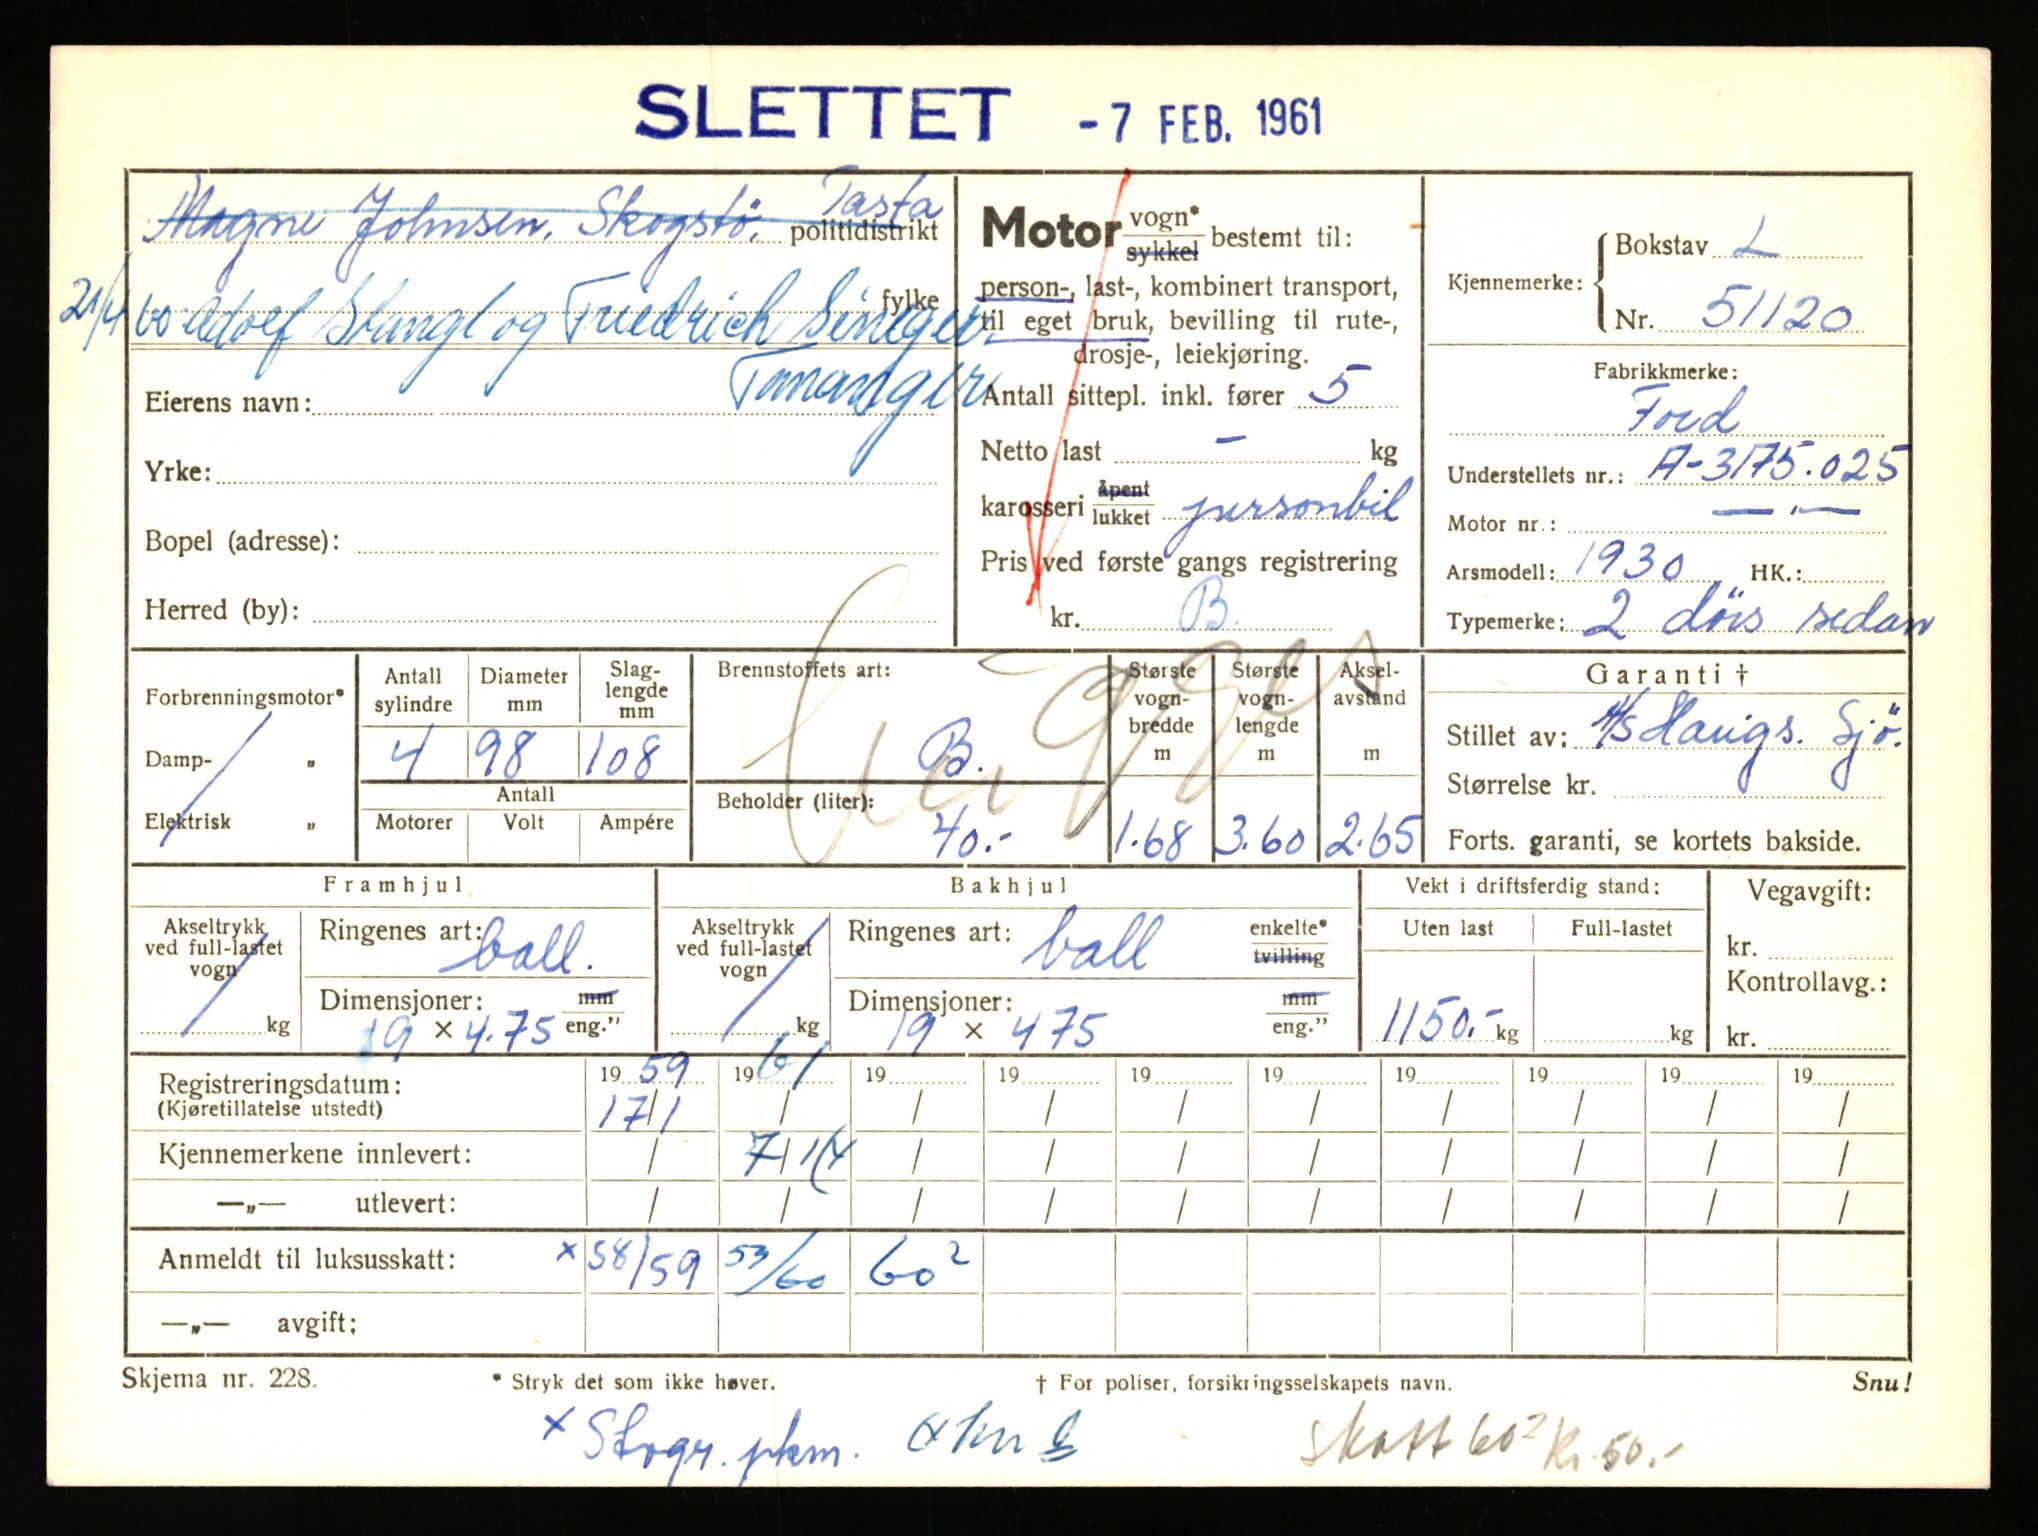 SLETTET -7 FEB. 1961
Magne Johnsen. Skogstö. Tasta
politidistrikt
21/4 60 Adolf Stangl og Friedrich
fylke
Tananger
Eierens navn:
Yrke:
Bopel (adresse):
Herred (by):
Motor vogn* sykkel bestemt til:
person-, last-, kombinert transport,
til eget bruk, bevilling til rute-,
drosje-, leiekjøring.
Antall sittepl. inkl. fører 5
Netto last – kg
karosseri åpent lukket personbil
Pris ved første gangs registrering
kr. B.
Kjennemerke: { Bokstav L
Nr. 51120
Fabrikkmerke:
Ford
Understellets nr.: A-3175.025
Motor nr.: — „ —
Arsmodell: 1930 HK.:
Typemerke: 2 dörs sedan
Forbrenningsmotor*
Damp- „
Elektrisk „
Antall sylindre Diameter mm Slag-lengde mm
4 98 108
Antall
Motorer Volt Ampére
Brennstoffets art:
B.
Beholder (liter):
40.-
Største vogn-bredde m Største vogn-lengde m Aksel-avstand m
1.68 3.60 2.65
Garanti †
Stillet av: A/S Haugs. Sjö.
Størrelse kr.
Forts. garanti, se kortets bakside.
Framhjul
Akseltrykk ved full-lastet vogn
kg
Ringenes art: ball.
Dimensjoner: mm
19 × 4.75 eng.”
Bakhjul
Akseltrykk ved full-lastet vogn
kg
Ringenes art: ball enkelte* tvilling
Dimensjoner: mm
19 × 475 eng.”
Vekt i driftsferdig stand:
Uten last Full-lastet
1150.- kg kg
Vegavgift:
kr.
Kontrollavg.:
kr.
Registreringsdatum: 19 59 19 61 19 19 19 19 19 19 19 19
(Kjøretillatelse utstedt) 17/1 / / / / / / / / /
Kjennemerkene innlevert: / 7/1 / / / / / / / /
—„— utlevert: / / / / / / / / / /
Anmeldt til luksusskatt: × 58/59 53/60 60²
—„— avgift;
Skjema nr. 228. * Stryk det som ikke høver. † For poliser, forsikringsselskapets navn. Snu!
× Skogr. pkm. Skatt 60² kr. 50.-